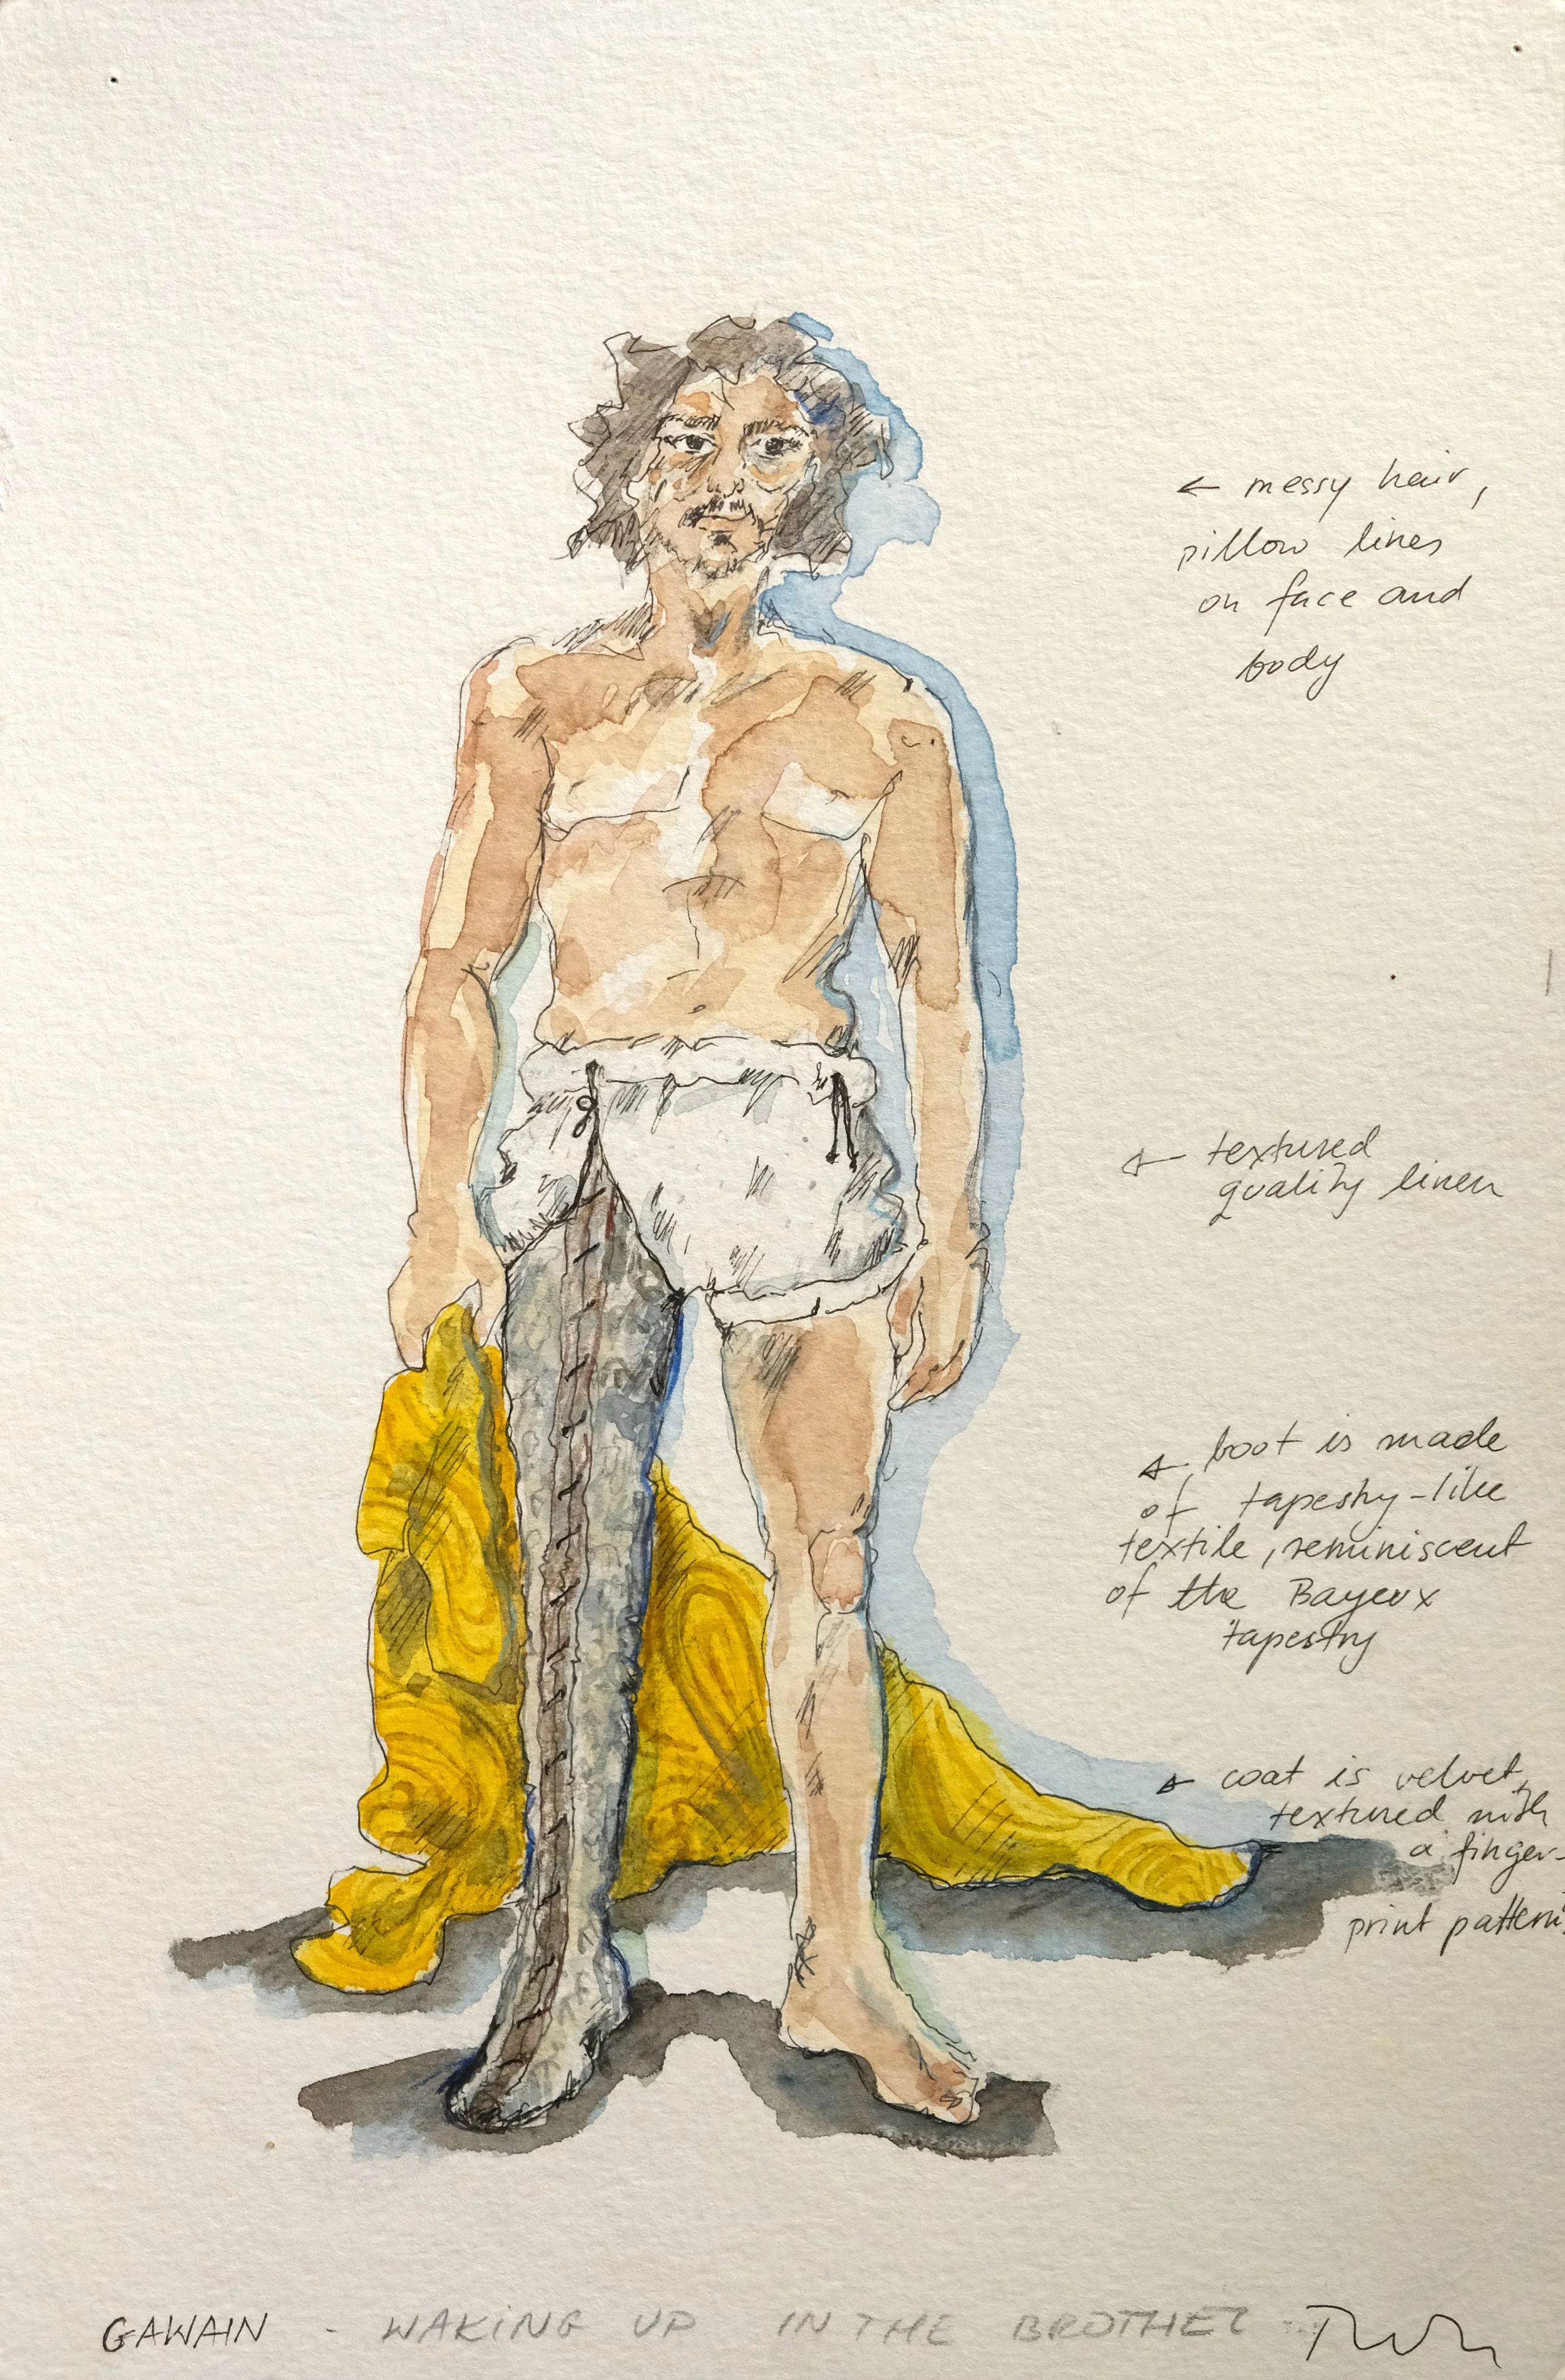 ← messy hair,
pillow lines
on face and
body
← textured
quality linen
← boot is made
of tapestry-like
textile, reminiscent
of the Bayeux
tapestry
← coat is velvet,
textured with
a finger-
print pattern.
GAWAIN - WAKING UP IN THE BROTHEL -